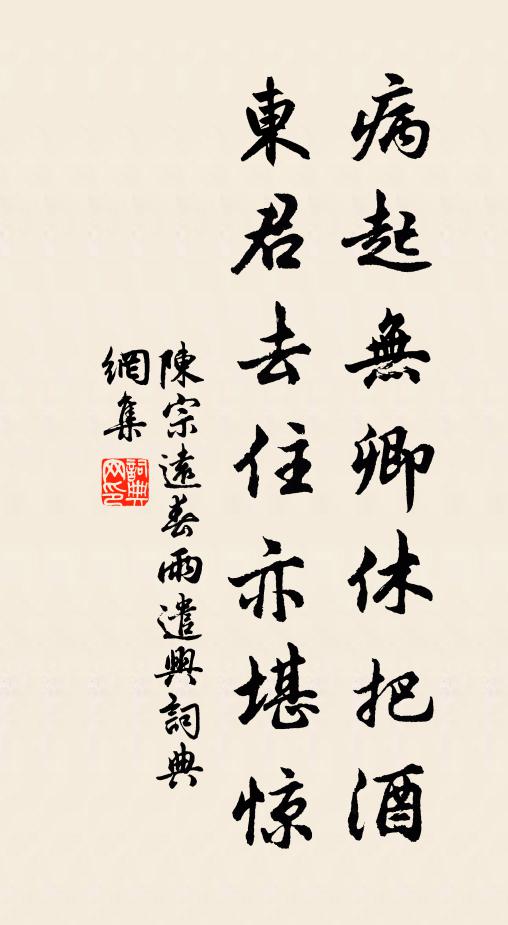 病起無卿休把酒
東君去住亦堪惊
陳宗遠春雨遣興詞典
網集
詞典网印